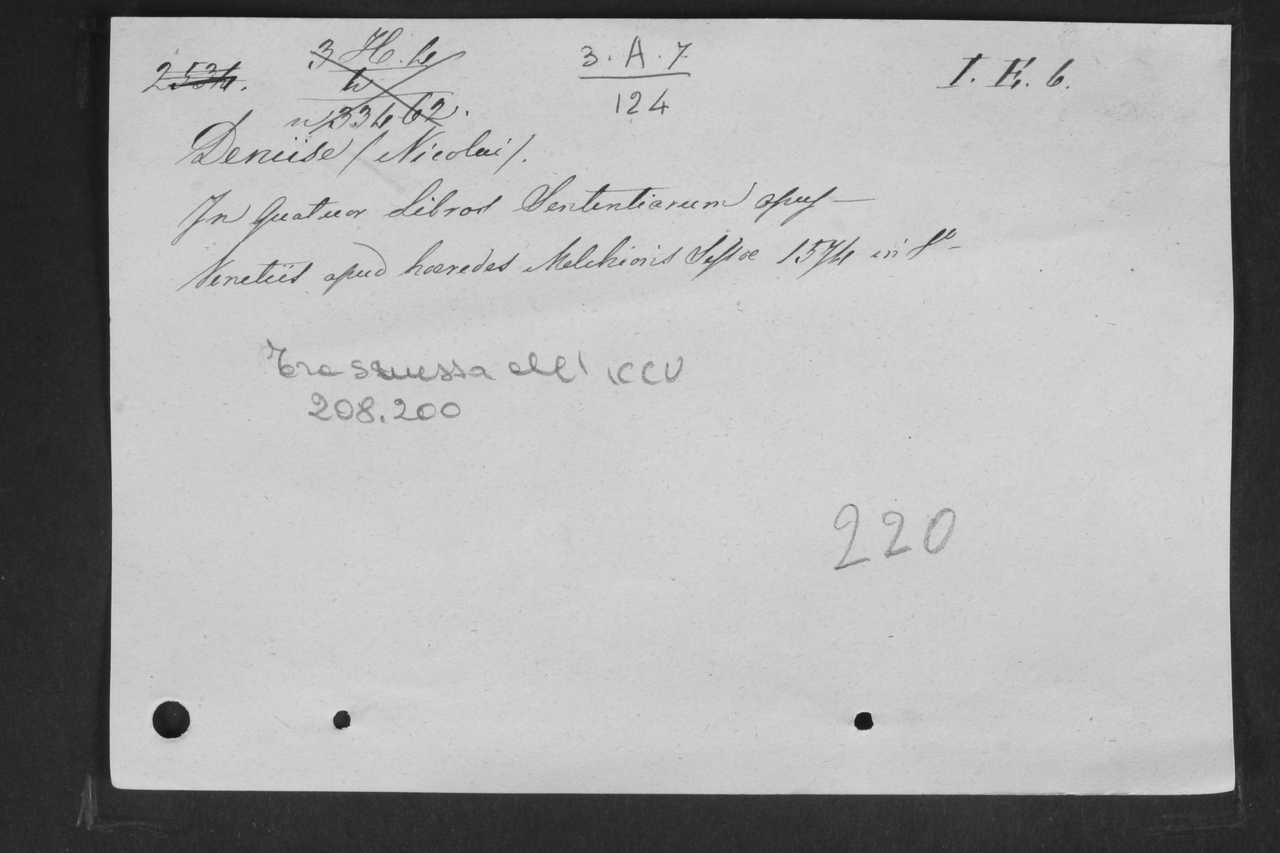 2534. 3 H. 4 3. A. 7 I. E. 6.
4 124
n/33462.
Deniise (Nicolai).
In Quatuor Libros Sententiarum opus —
Venetiis apud haeredes Melchioris Sessae 1574 in 8º —
Trasmessa all' ICCU
208.200
220